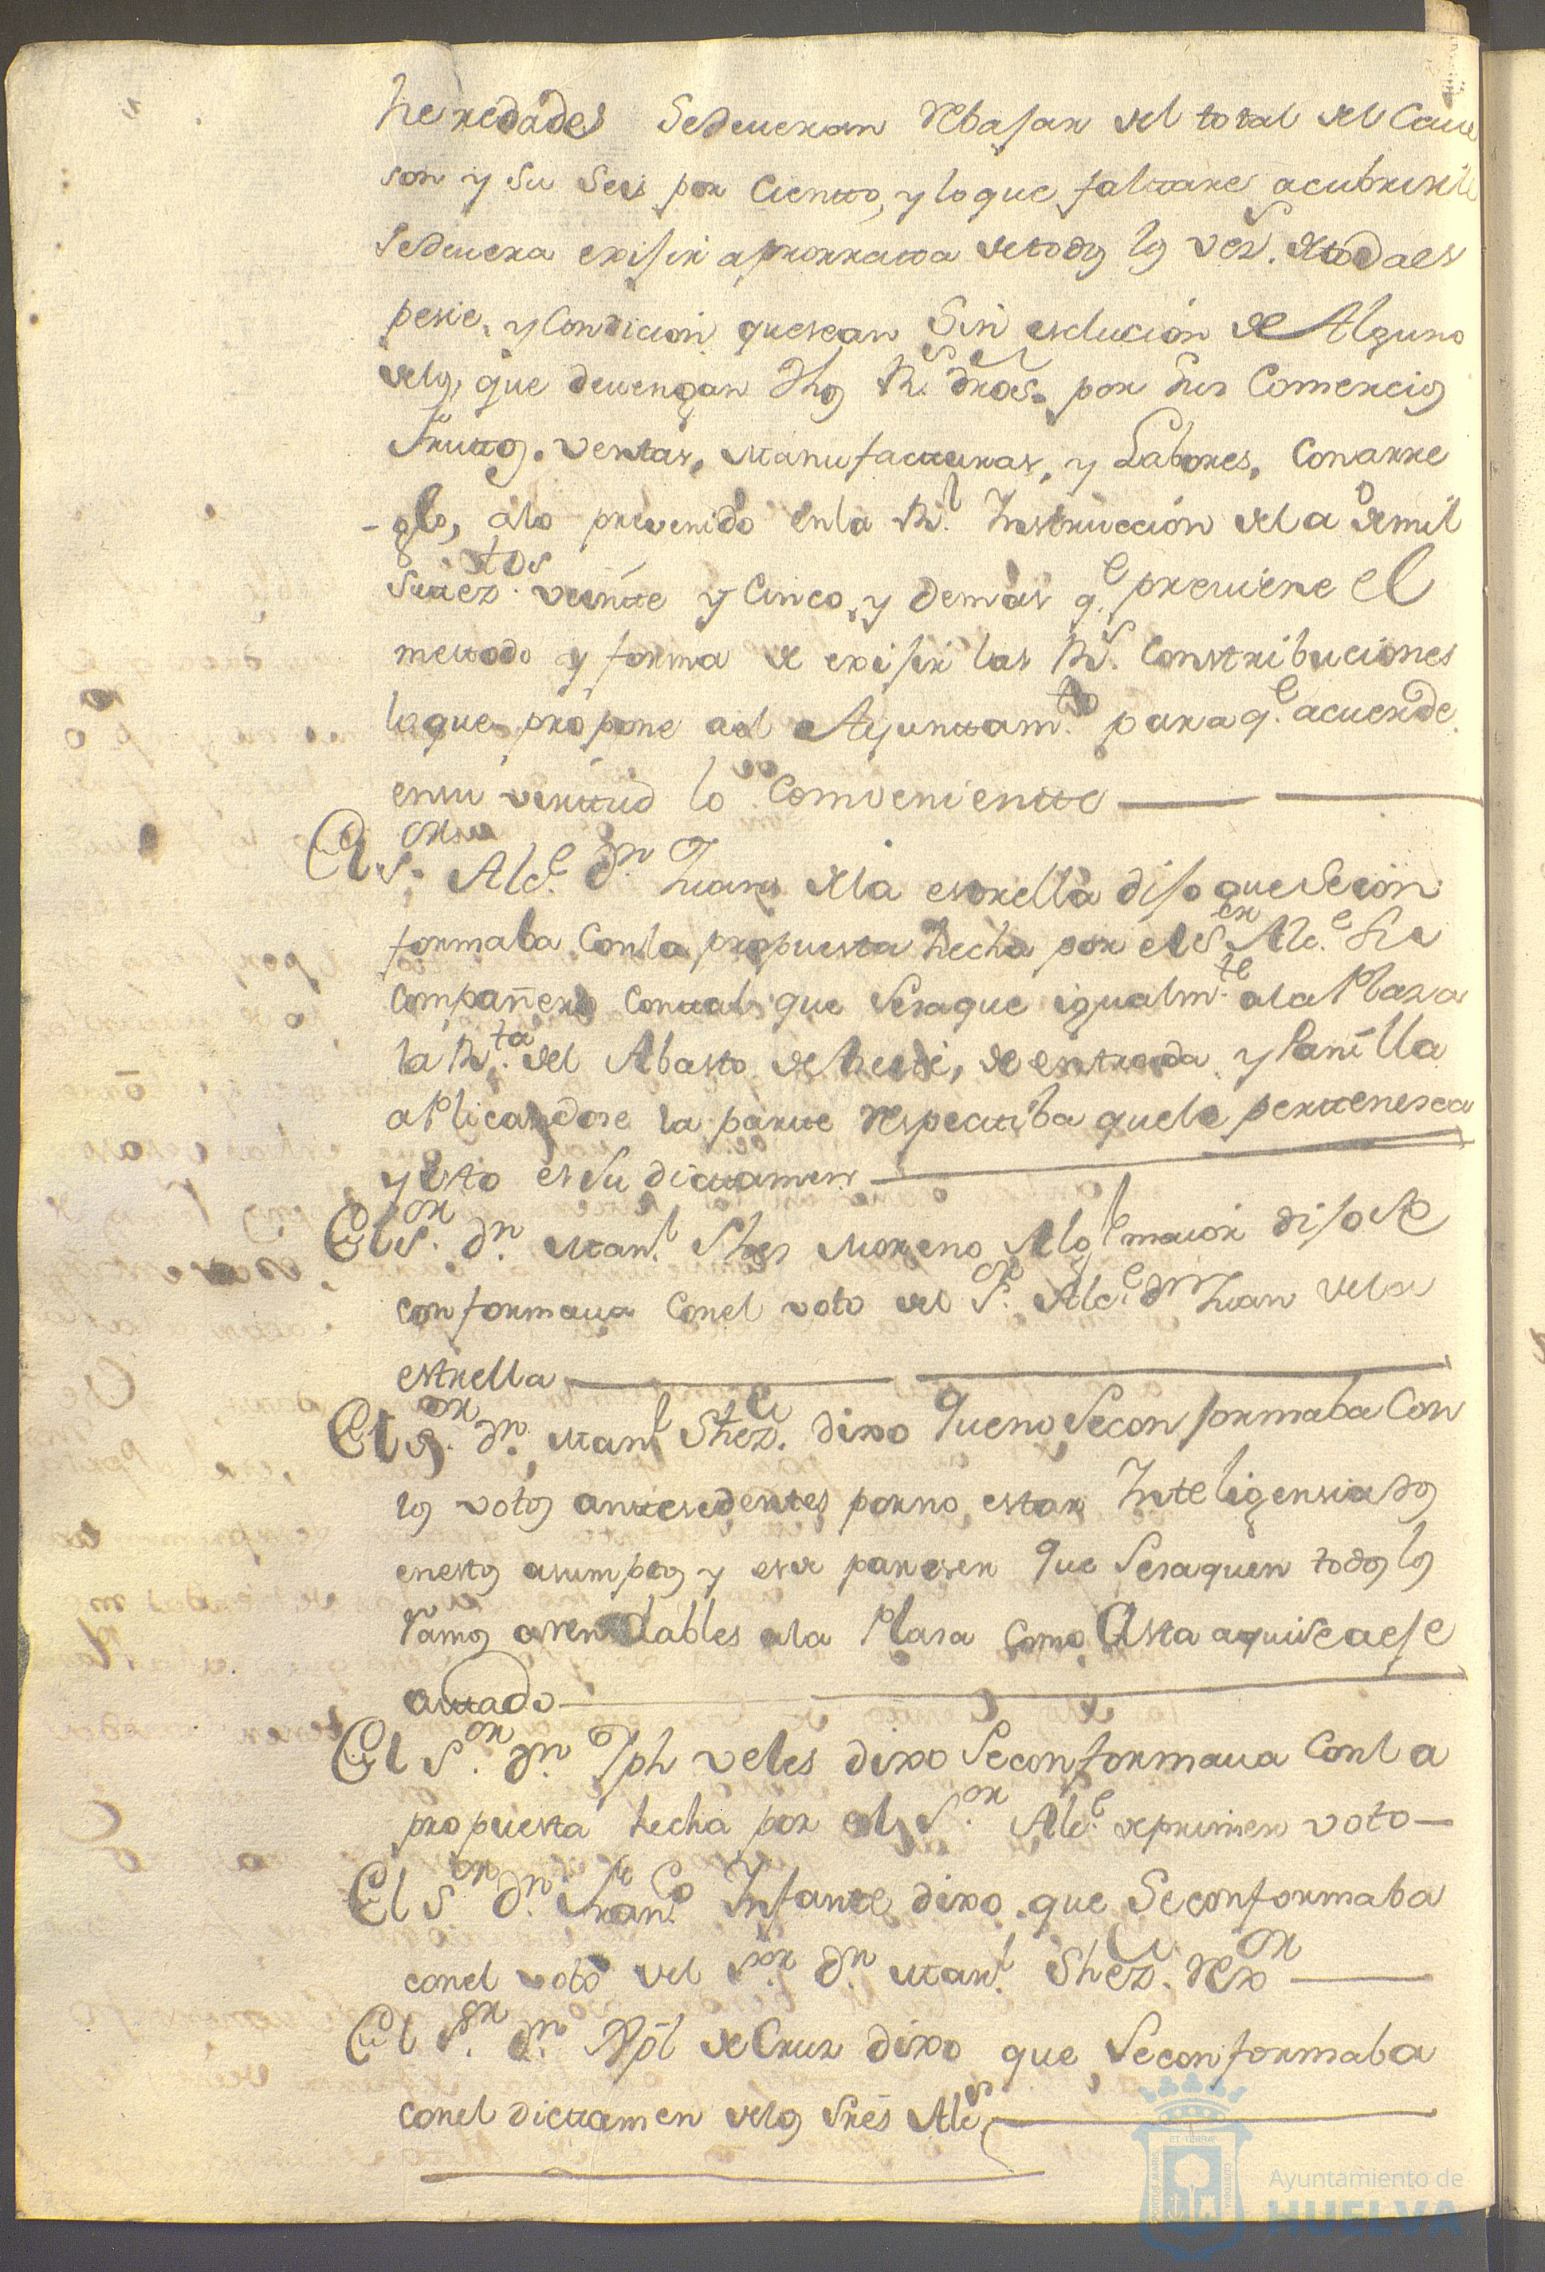 heredades Sedeveran Rebajar del total del Cave
son y su Seis por Ciento, y loque faltare acubrirle
Sedevera exijir aprorrata detodos los vez.s detodaes
pesie, y Condicion quesean Sin esclucion de Alguno
delos, que devengan dhos R.s dros. por sus Comercios
frutos. ventas, Manufacturas, y Labores, Conarre
-glo, alo prevenido enla R.l Instruccion dela demil
Setez.tos veinte y Cinco, y demas q.e previene el
metodo y forma de exijir las R.s Contribuciones
loque propone ael Ayuntam.to para q.e acuerde
ensu virtud lo Comveniente
El S.or Alc.e d.n Juan dela estrella dijo que Secon
formaba Conla propuesta hecha por el S.or Alc.e Su
Compañero Contal que Sesaque igualm.te ala Plasa
la R.ta del Abasto de, de entrada y Panilla
aplicandose la parte Respectiba quele pertenesca
y esto es Su dictamen
El S.or d.n Man.l Shes Moreno Alg.l maior dijo Se
conformava Conel voto del S.or Alc.e d.n Juan dela
estrella
El S.or d.n Man.l Shez. dixo Queno Seconformaba Con
los votos antesedentes porno estar Inteligensiados
enestos asumptos y es de paresen Que Sesaquen todos los
Ramos arendables ala Plasa Como Asta aqui se aeje
cutado
El S.or d.n Jph veles dixo Seconformava Conla
propuesta hecha por el S.or Alc.e deprimer voto
El S.or d.n Fran.co Infante dixo que Seconformaba
conel voto del S.or d.n Man.l Shez. Rex.or
El S.or d.n Xpl deCruz dixo que Seconformaba
conel dictamen delos Sres Alc.s
Ayuntamiento de
HUELVA